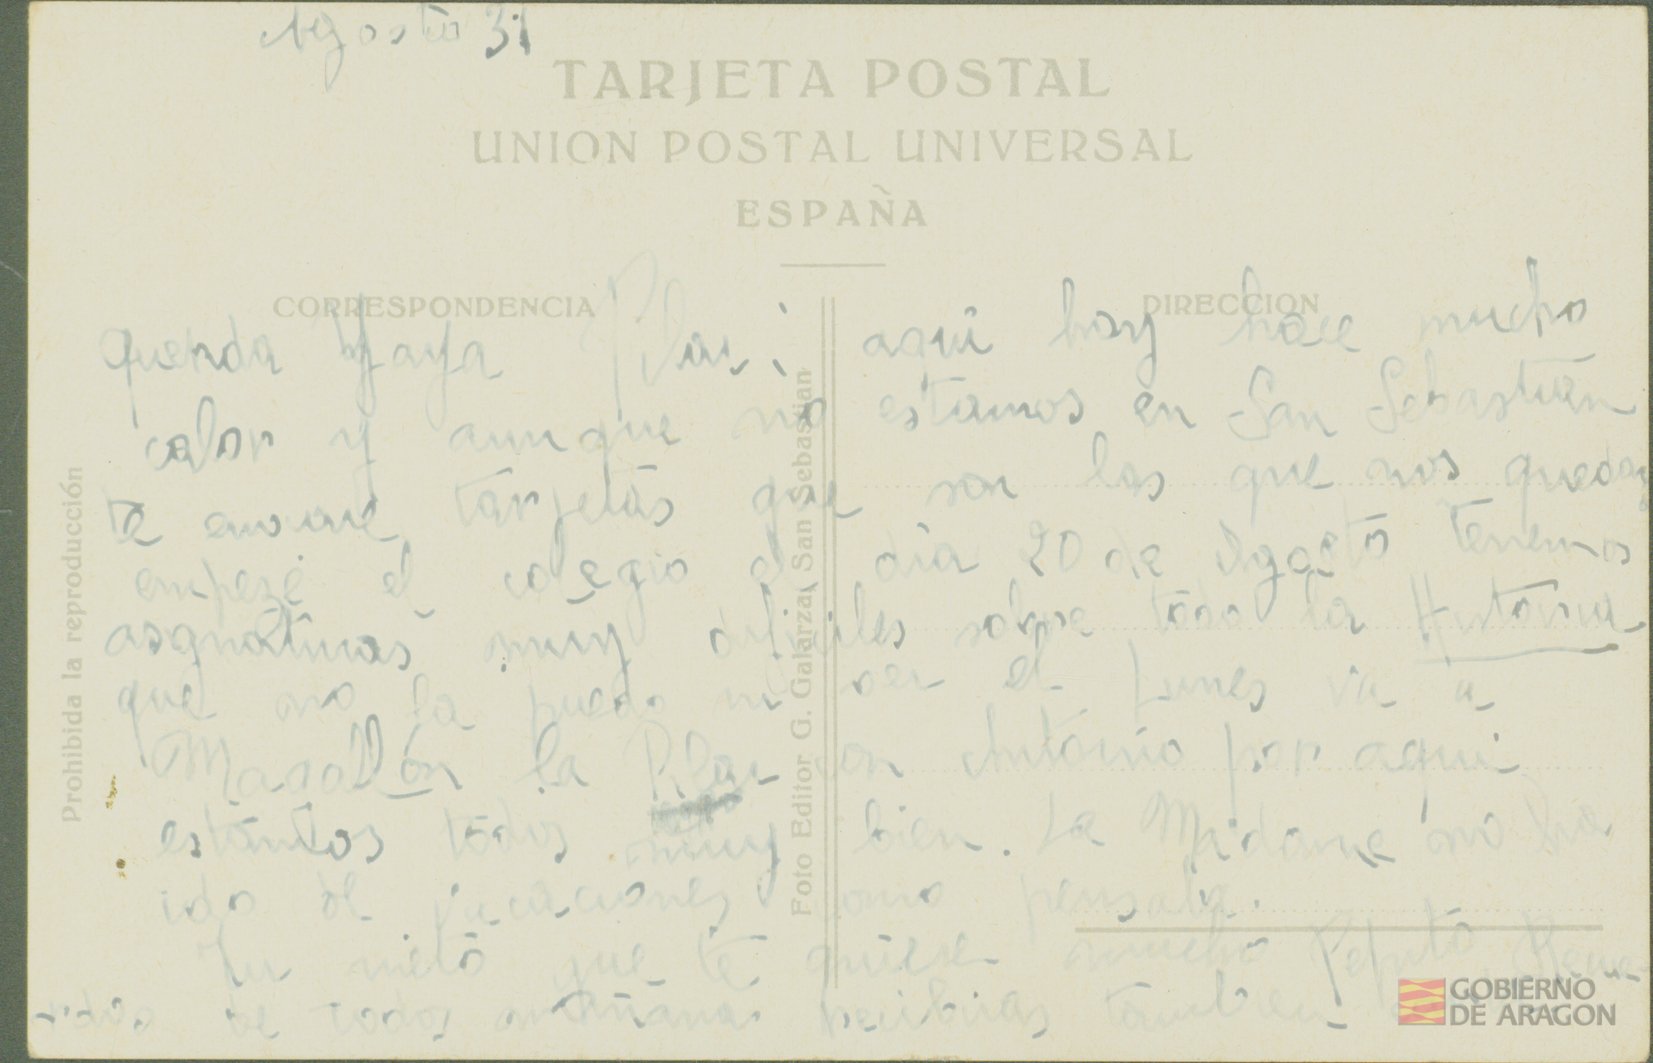 Agosto 31
TARJETA POSTAL
UNION POSTAL UNIVERSAL
ESPAÑA
CORRESPONDENCIA
DIRECCION
querida Yaya Pilar: aqui hoy hace mucho
calor y aunque no estamos en San Sebastian
te enviare tarjetas que son las que nos quedan
empezé el colegio el dia 20 de Agosto tenemos
asignaturas muy dificiles sobre todo la Historia
que no la puedo ni ver el Lunes va a
Magallón la Pilar con Antonio por aqui
estamos todos muy bien. La Madame no ha
ido de vacaciones como pensaba.
Tu nieto que te quiere mucho Pepito Recue-
rdos de todos mañana recibiras tambien
Prohibida la reproducción
Foto Editor G. Galarza, San Sebastian
GOBIERNO
DE ARAGON